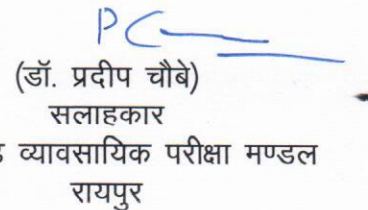 (डॉ. प्रदीप चौबे)
सलाहकार
व्यावसायिक परीक्षा मण्डल
रायपुर